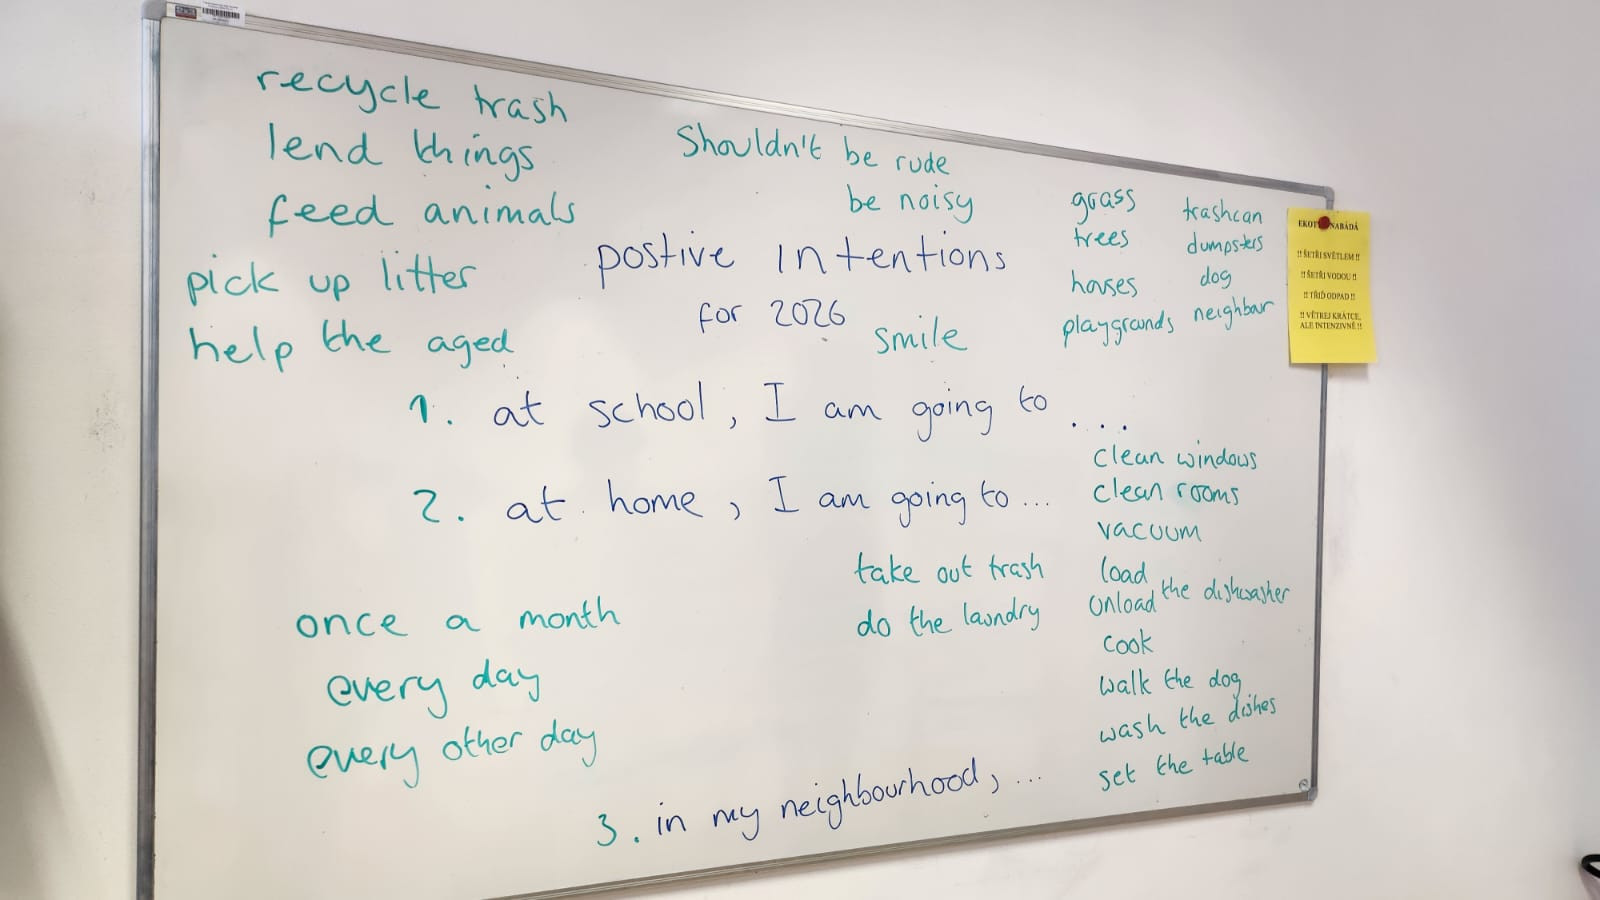 recycle trash
lend things
feed animals
pick up litter
help the aged
Shouldn't be rude
be noisy
postive intentions
for 2026
smile
grass
trees
houses
playgrounds
trashcan
dumpsters
dog
neighbour
1. at school, I am going to ...
2. at home, I am going to ...
clean windows
clean rooms
vacuum
load
unload the dishwasher
cook
walk the dog
wash the dishes
set the table
take out trash
do the laundry
once a month
every day
every other day
3. in my neighbourhood, ...
!! ŠETŘI SVĚTLEM !!
!! ŠETŘI VODOU !!
!! TŘIĎ ODPAD !!
!! VĚTREJ KRÁTCE,
ALE INTENZIVNĚ !!